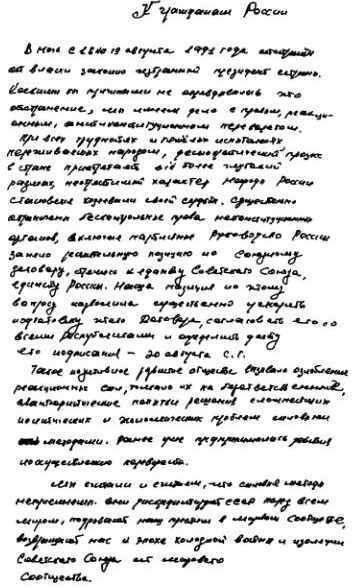 К гражданам России
В ночь с 18 на 19 августа 1991 года отстранён
от власти законно избранный президент страны.
Какими бы причинами не оправдывалось это
отстранение, мы имеем дело с правым, реакци-
онным, антиконституционным переворотом.
При всех трудностях и тяжёлых испытаниях
переживаемых народом, демократический процесс
в стране приобретает всё более глубокий
размах, необратимый характер народы России
становятся хозяевами своей судьбы. Существенно
ограничены бесконтрольные права неконституционных
органов, включая партийные Руководство России
заняло решительную позицию по Союзному
договору, стремясь к единству Советского Союза,
единству России. Наша позиция по этому
вопросу позволила существенно ускорить
подготовку этого Договора, согласовать его со
всеми республиками и определить дату
его подписания – 20 августа с.г.
Такое развитие событий вызвало озлобление
реакционных сил, толкало их на безответственные,
авантюристические попытки решения сложнейших
политических и экономических проблем силовыми
методами. Ранее уже предпринимались попытки
по осуществлению переворота.
Мы считали и считаем, что силовые методы
неприемлемы. Они дискредитируют СССР перед всем
миром, подрывают наш престиж в мировом сообществе,
возвращают нас к эпохе холодной войны и изоляции
Советского Союза от мирового
сообщества.